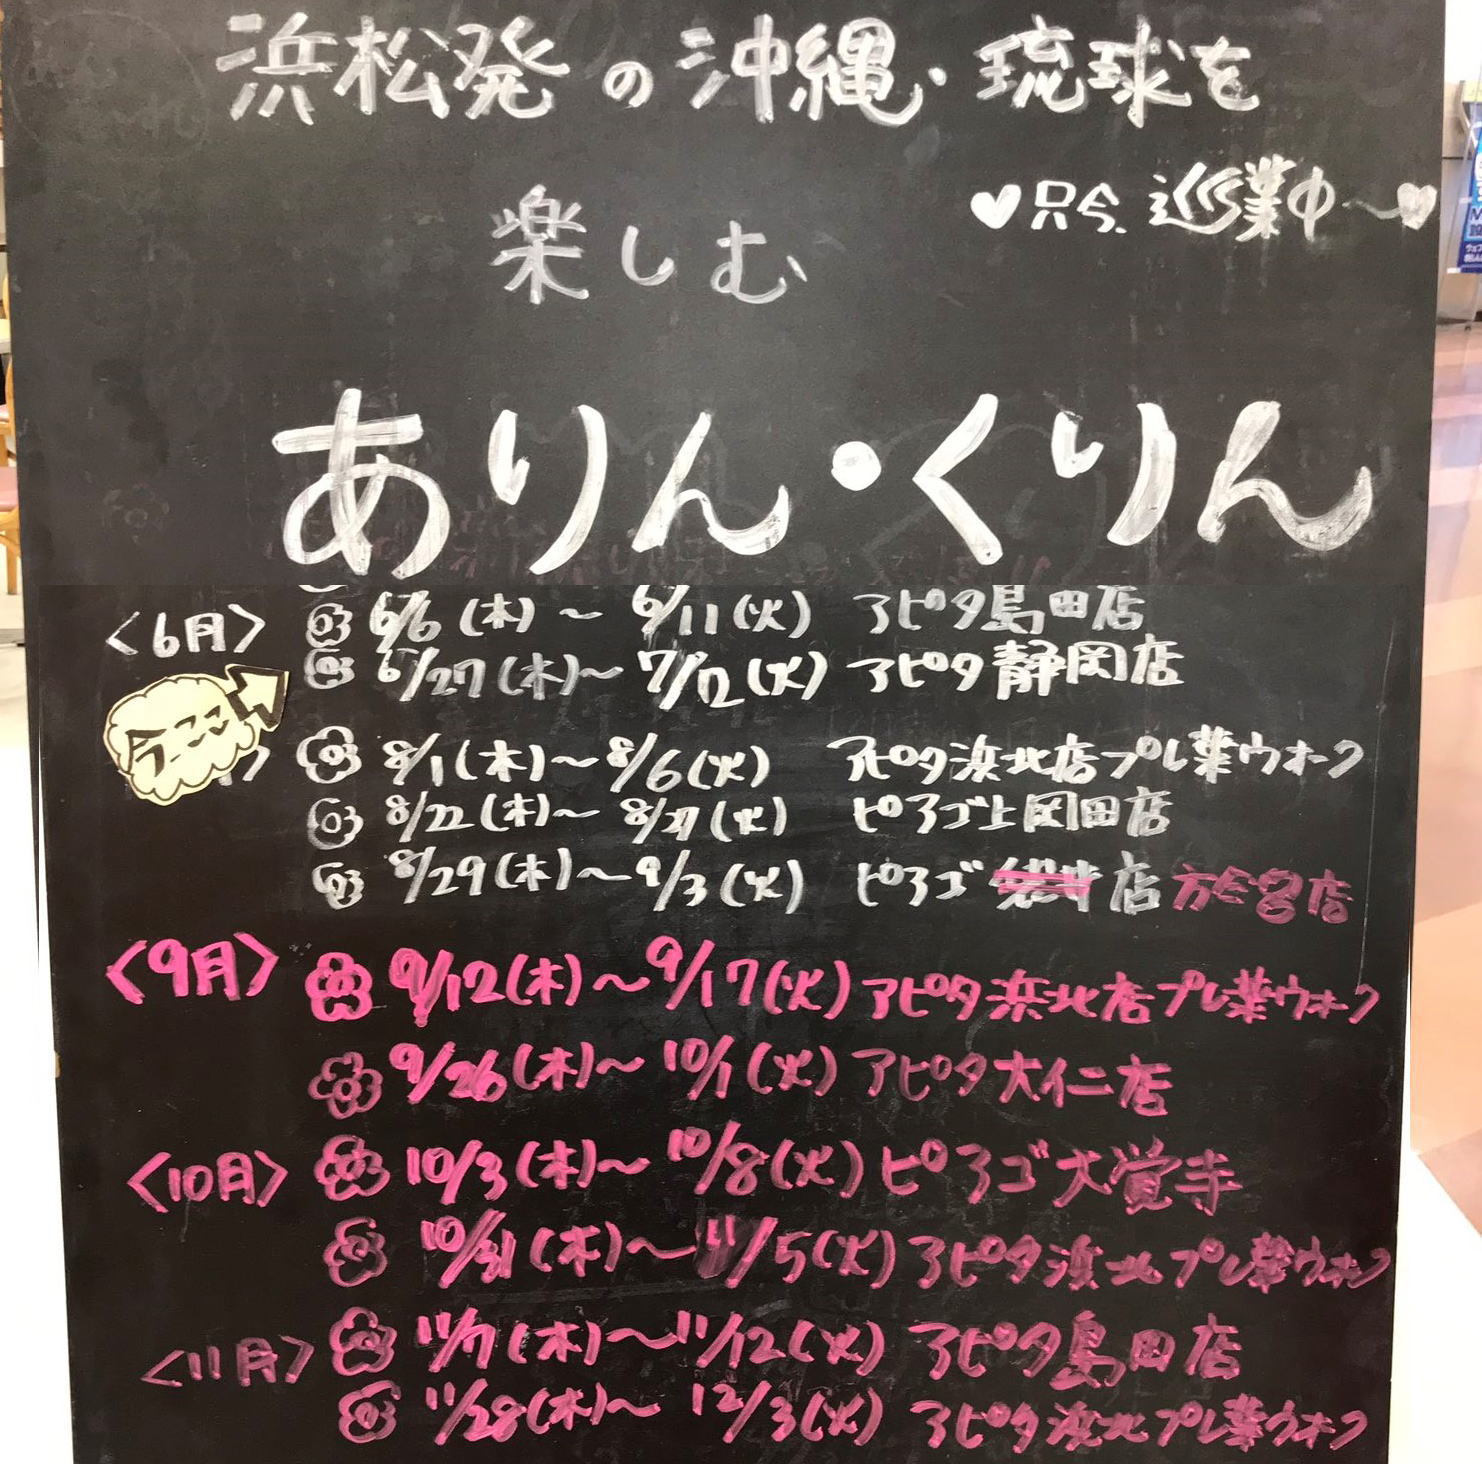 浜松発の沖縄・琉球を
楽しむ
♥只今.巡業中〜♥
ありん・くりん
<6月> 6/6(木)〜6/11(火) アピタ島田店
6/27(木)〜7/2(火) アピタ静岡店
今ココ
8/1(木)〜8/6(火) アピタ浜北店プレ葉ウオーク
8/22(木)〜8/27(火) ピアゴ上岡田店
8/29(木)〜9/3(火) ピアゴ 店
<9月> 9/12(木)〜9/17(火) アピタ浜北店プレ葉ウォーク
9/26(木)〜10/1(火) アピタ大仁店
<10月> 10/3(木)〜10/8(火) ピアゴ大覚寺
10/31(木)〜11/5(火) アピタ浜北プレ葉ウオーク
<11月> 11/7(木)〜11/12(火) アピタ島田店
11/28(木)〜12/3(火) アピタ浜北プレ葉ウォーク